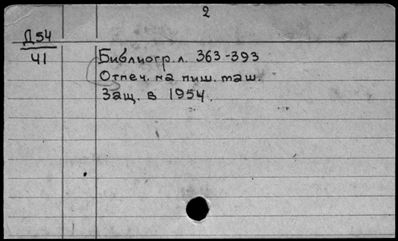 2
Д54
41
Библиогр. л. 363-393
Отпеч. на пиш. таш.
Защ. в 1954.